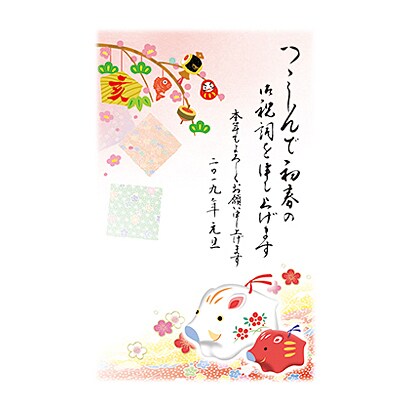 つつしんで初春の
御祝詞を申し上げます
本年もよろしくお願い申し上げます
二〇一九年 元旦
亥